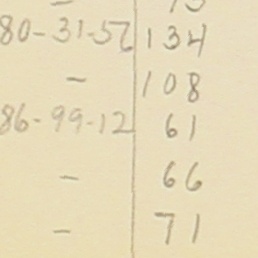 80-31-52 134
- 108
86-99-12 61
- 66
- 71